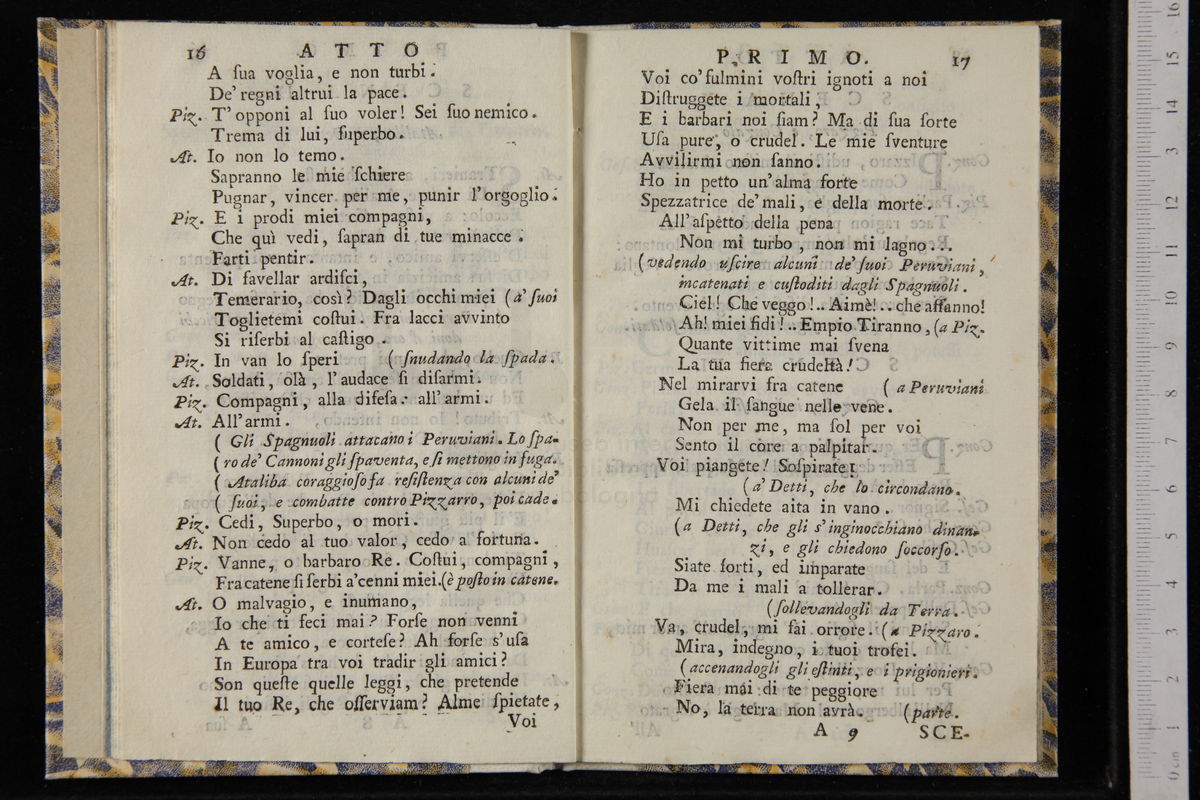 16 ATTO
A ſua voglia, e non turbi.
De' regni altrui la pace.
Piz. T' opponi al ſuo voler! Sei ſuo nemico.
Trema di lui, ſuperbo.
At. Io non lo temo.
Sapranno le mie ſchiere
Pugnar, vincer per me, punir l'orgoglio.
Piz. E i prodi miei compagni,
Che quì vedi, ſapran di tue minacce.
Farti pentir.
At. Di favellar ardiſci,
Temerario, così? Dagli occhi miei (a' ſuoi
Toglietemi coſtui. Fra lacci avvinto
Si riſerbi al caſtigo.
Piz. In van lo ſperi (ſnudando la ſpada.
At. Soldati, olà, l'audace ſi diſarmi.
Piz. Compagni, alla difeſa: all'armi.
At. All'armi.
( Gli Spagnuoli attacano i Peruviani. Lo ſpa-
( ro de' Cannoni gli ſpaventa, e ſi mettono in fuga.
( Ataliba coraggioſo fa reſiſtenza con alcuni de'
( ſuoi, e combatte contro Pizzarro, poi cade.
Piz. Cedi, Superbo, o mori.
At. Non cedo al tuo valor, cedo a fortuna.
Piz. Vanne, o barbaro Re. Coſtui, compagni,
Fra catene ſi ſerbi a'cenni miei.(è poſto in catene.
At. O malvagio, e inumano,
Io che ti feci mai? Forſe non venni
A te amico, e corteſe? Ah forſe s'uſa
In Europa tra voi tradir gli amici?
Son queſte quelle leggi, che pretende
Il tuo Re, che oſſerviam? Alme ſpietate,
Voi
PRIMO. 17
Voi co'fulmini voſtri ignoti a noi
Diſtruggete i mortali,
E i barbari noi ſiam? Ma di ſua ſorte
Uſa pure, o crudel. Le mie ſventure
Avvilirmi non ſanno.
Ho in petto un'alma forte
Spezzatrice de'mali, e della morte.
All'aſpetto della pena
Non mi turbo, non mi lagno...
(vedendo uſcire alcuni de' ſuoi Peruviani,
incatenati e cuſtoditi dagli Spagnuoli.
Ciel! Che veggo!.. Aimè!.. che affanno!
Ah! miei fidi!.. Empio Tiranno, (a Piz.
Quante vittime mai ſvena
La tua fiera crudeltà!
Nel mirarvi fra catene (a Peruviani
Gela il ſangue nelle vene.
Non per me, ma ſol per voi
Sento il core a palpitar.
Voi piangete! Soſpirate!
(a' Detti, che lo circondano.
Mi chiedete aita in vano.
(a Detti, che gli s'inginocchiano dinan-
zi, e gli chiedono ſoccorſo.
Siate forti, ed imparate
Da me i mali a tollerar.
(ſollevandogli da Terra.
Va, crudel, mi fai orrore. (a Pizzaro.
Mira, indegno, i tuoi trofei.
(accenandogli gli eſtinti, e i prigionieri.
Fiera mai di te peggiore
No, la terra non avrà. (parte.
A 9 SCE-